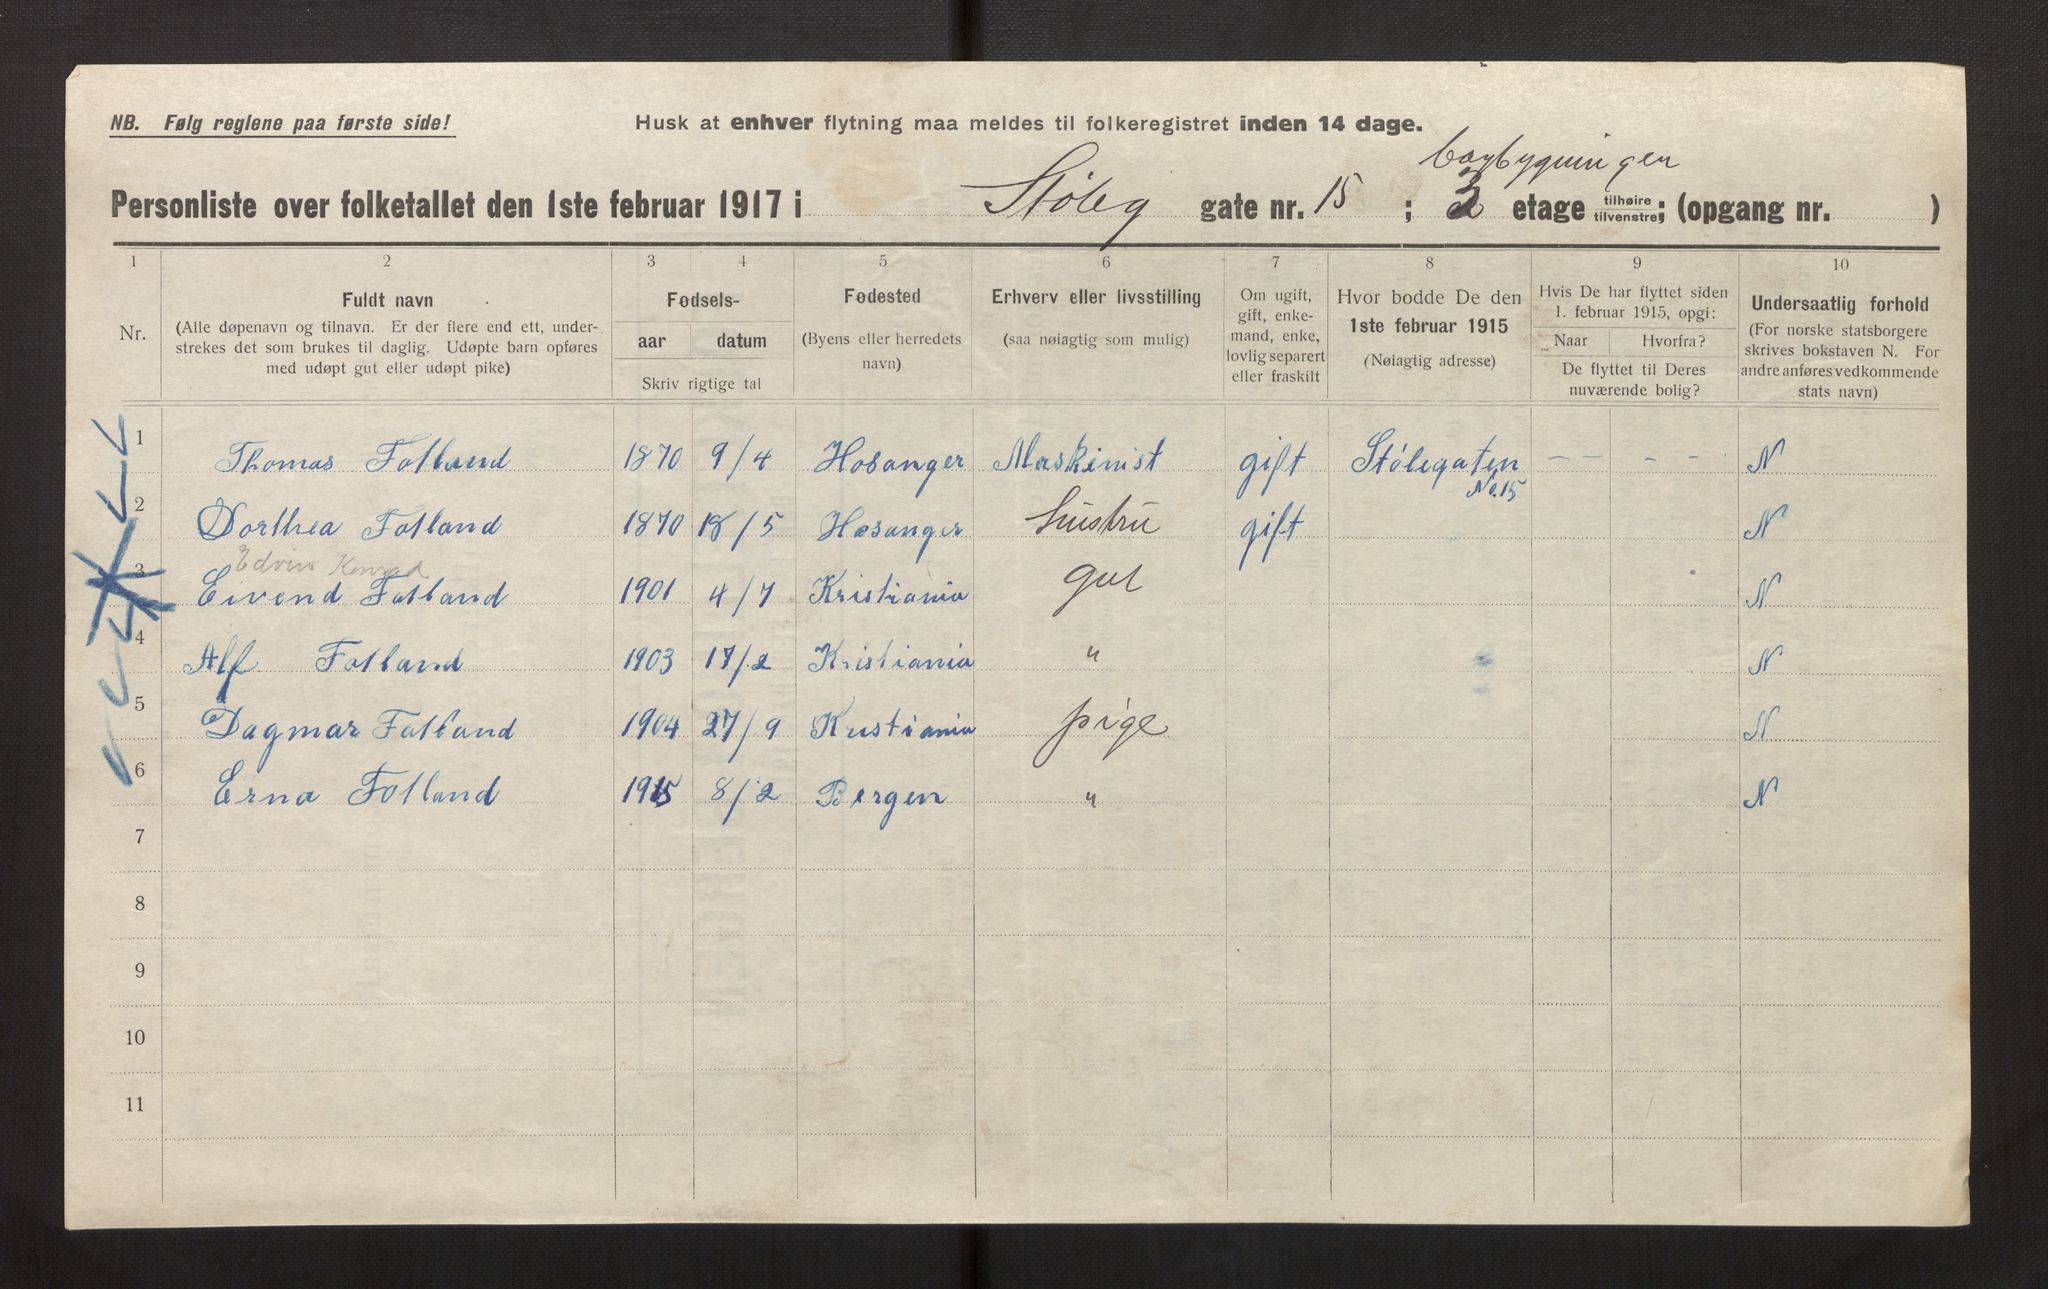 NB. Følg reglene paa første side!
Husk at enhver flytning maa meldes til folkeregistret inden 14 dage.
Bagbygningen
Personliste over folketallet den 1ste februar 1917 i Støleg gate nr. 15 ; 3 etage tilhøire tilvenstre; (opgang nr. )
1 2 3 4 5 6 7 8 9 10
Nr.
Fuldt navn
(Alle døpenavn og tilnavn. Er der flere end ett, under-
strekes det som brukes til daglig. Udøpte barn opføres
med udøpt gut eller udøpt pike)
Fødsels-
aar datum
Skriv rigtige tal
Fødested
(Byens eller herredets
navn)
Erhverv eller livsstilling
(saa nøiagtig som mulig)
Om ugift,
gift, enke-
mand, enke,
lovlig separert
eller fraskilt
Hvor bodde De den
1ste februar 1915
(Nøiagtig adresse)
Hvis De har flyttet siden
1. februar 1915, opgi:
Naar Hvorfra?
De flyttet til Deres
nuværende bolig?
Undersaatlig forhold
(For norske statsborgere
skrives bokstaven N. For
andre anføres vedkommende
stats navn)
1 Thomas Fotland 1870 9/4 Hosanger Maskinist gift Stølegaten No. 15 — — - - - N
2 Dorthea Fotland 1870 18/5 Hosanger hustru gift N
Edvin Konrad
3 Eivend Fotland 1901 4/7 Kristiania gut N
4 Alf Fotland 1903 17/2 Kristiania " N
5 Dagmar Fotland 1904 27/9 Kristiania pige N
6 Erna Fotland 1915 8/2 Bergen " N
7
8
9
10
11